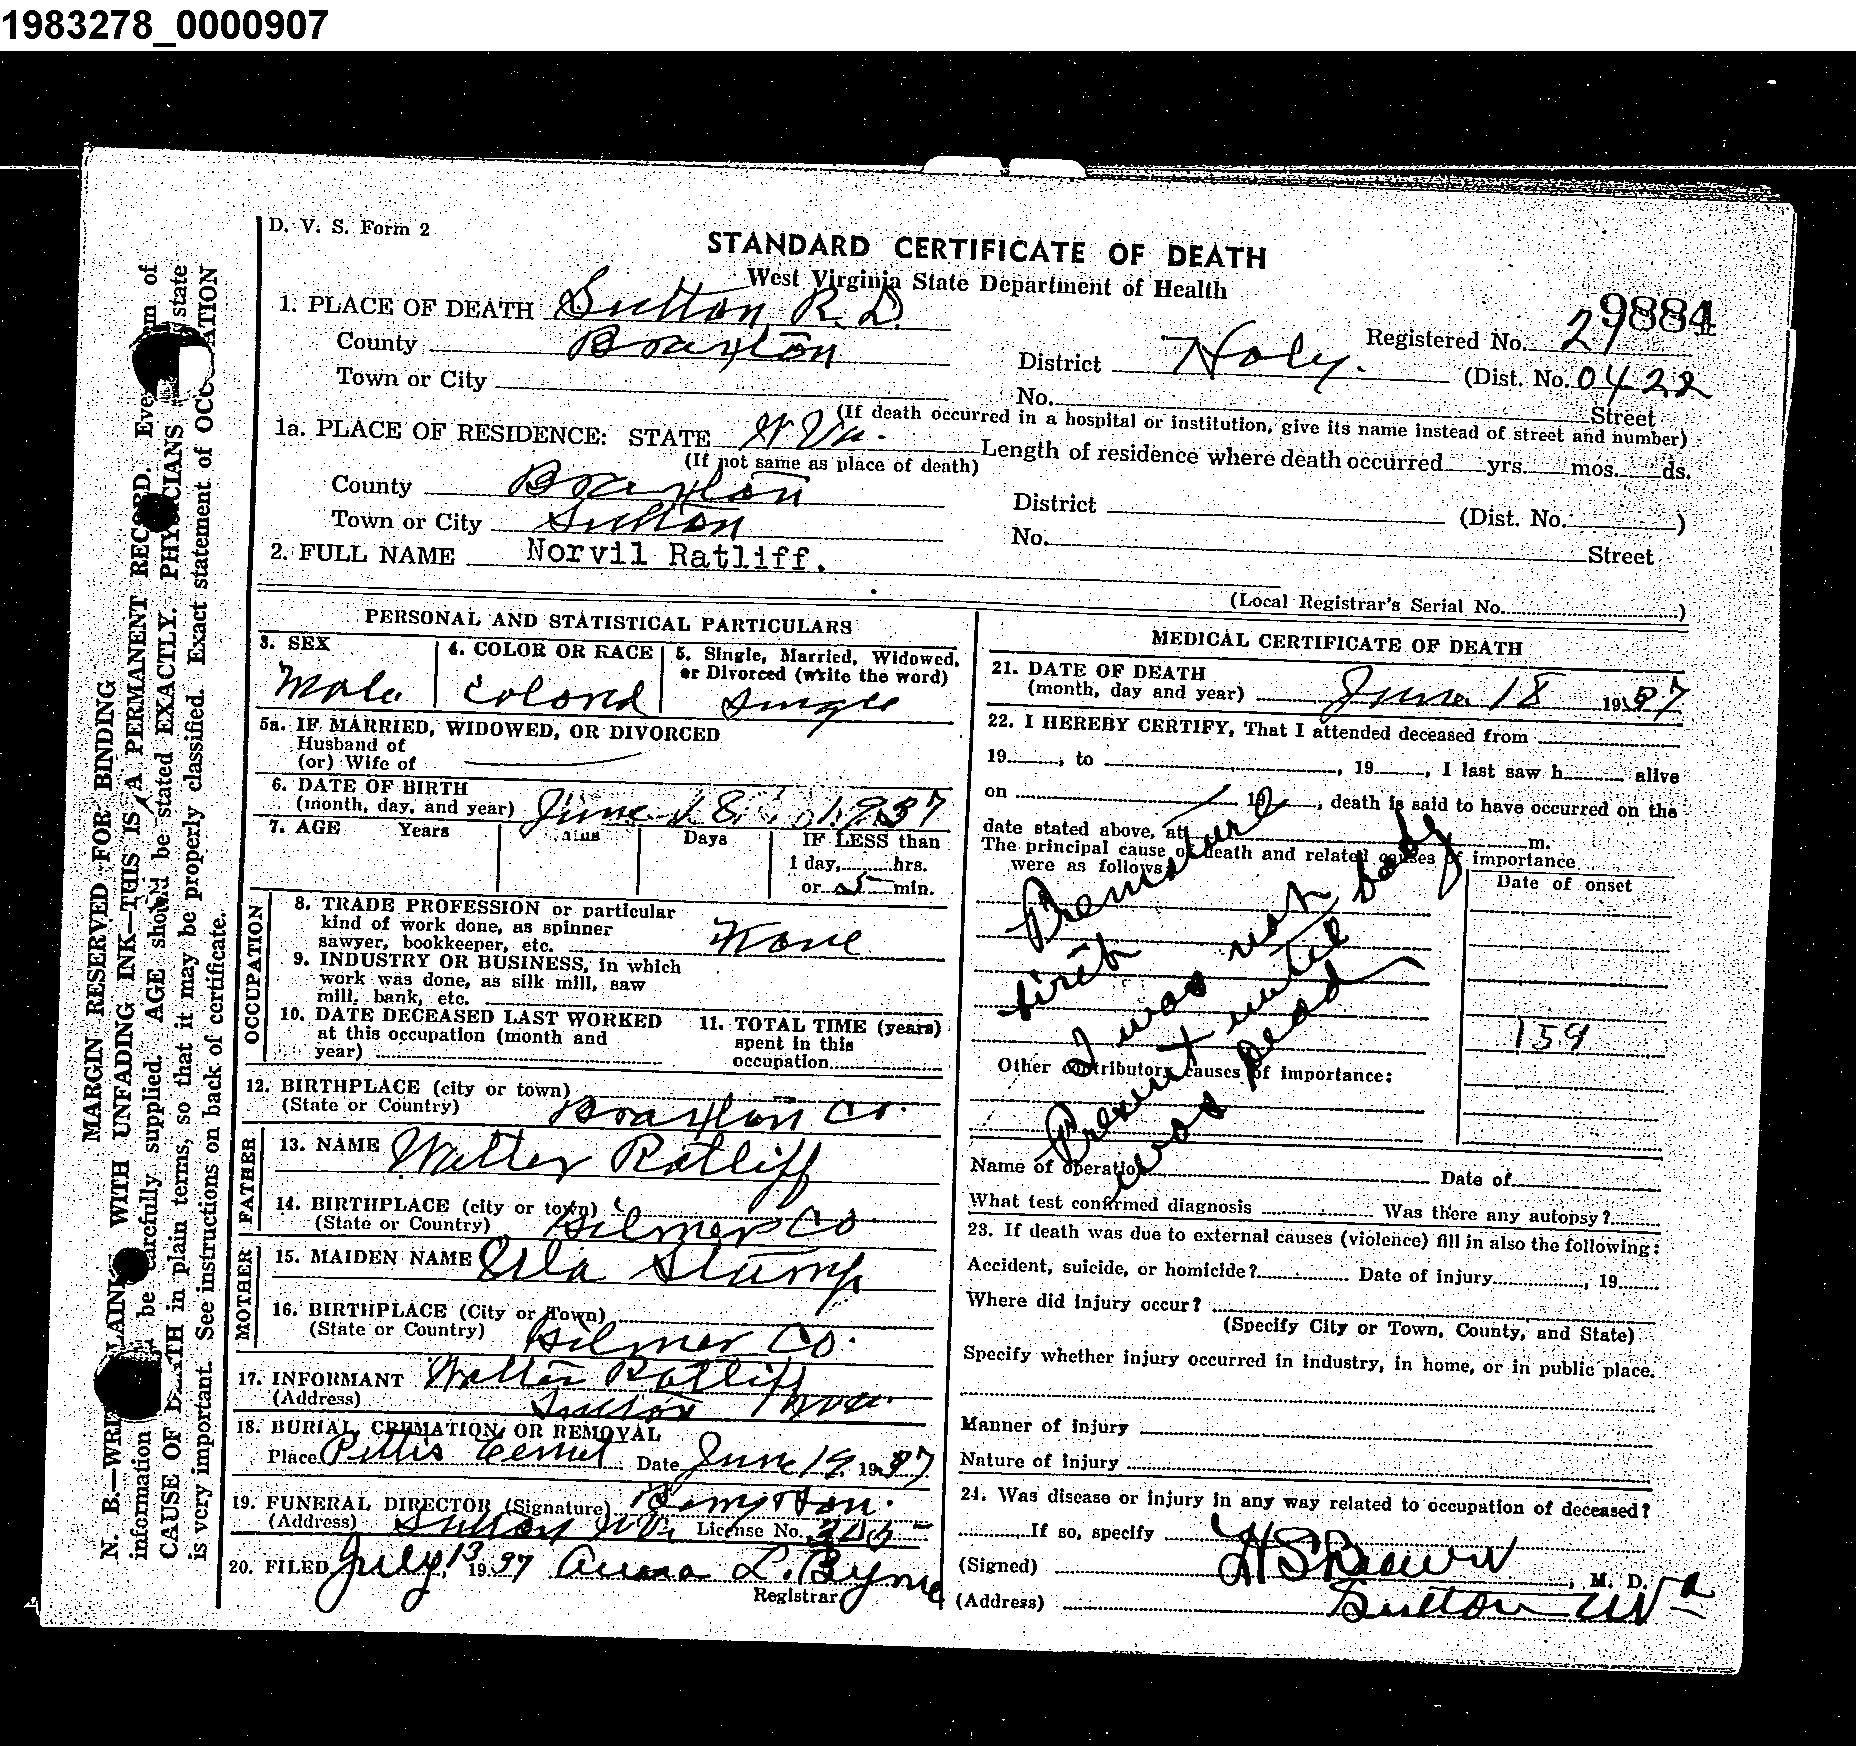 1983278_0000907
D. V. S. Form 2
STANDARD CERTIFICATE OF DEATH
West Virginia State Department of Health
9884
1. PLACE OF DEATH Sutton R. D.
Registered No. 21
County Braxton
District Holy. (Dist. No. 0422
Town or City
No. Street
(If death occurred in a hospital or institution, give its name instead of street and number)
1a. PLACE OF RESIDENCE: STATE W Va.
(If not same as place of death)
Length of residence where death occurred yrs. mos. ds.
County Braxton
District (Dist. No. )
Town or City Sutton
No. Street
2. FULL NAME Norvil Ratliff.
(Local Registrar's Serial No. )
PERSONAL AND STATISTICAL PARTICULARS
3. SEX Male
4. COLOR OR RACE Colord
5. Single, Married, Widowed, or Divorced (write the word) Single
5a. IF MARRIED, WIDOWED, OR DIVORCED
Husband of
(or) Wife of
6. DATE OF BIRTH
(month, day, and year) June 18 1937
7. AGE Years Days IF LESS than
1 day, hrs.
or 5 min.
OCCUPATION
8. TRADE PROFESSION or particular
kind of work done, as spinner
sawyer, bookkeeper, etc. None
9. INDUSTRY OR BUSINESS, in which
work was done, as silk mill, saw
mill, bank, etc.
10. DATE DECEASED LAST WORKED
at this occupation (month and
year)
11. TOTAL TIME (years)
spent in this
occupation
12. BIRTHPLACE (city or town)
(State or Country) Braxton Co.
FATHER
13. NAME Walter Ratliff
14. BIRTHPLACE (city or town)
(State or Country) Gilmer Co
MOTHER
15. MAIDEN NAME Stump
16. BIRTHPLACE (City or Town)
(State or Country) Gilmer Co.
17. INFORMANT Walter Ratliff
(Address) Sutton
18. BURIAL, CREMATION, OR REMOVAL
Place Date June 19 1937
19. FUNERAL DIRECTOR (Signature)
(Address) Sutton W Va License No.
20. FILED July, 13 1937 Anna L. Byrne
Registrar
MEDICAL CERTIFICATE OF DEATH
21. DATE OF DEATH
(month, day and year) June 18 1937
22. I HEREBY CERTIFY, That I attended deceased from
19 , to , 19 , I last saw h alive
on , 19 , death is said to have occurred on the
date stated above, at m.
The principal cause of death and related causes of importance
were as follows
Date of onset
Premature
birth
I was not
Present until body
was dead
159
Other contributory causes of importance:
Name of operation Date of
What test confirmed diagnosis Was there any autopsy?
23. If death was due to external causes (violence) fill in also the following:
Accident, suicide, or homicide? Date of injury , 19
Where did injury occur?
(Specify City or Town, County, and State)
Specify whether injury occurred in industry, in home, or in public place.
Manner of injury
Nature of injury
24. Was disease or injury in any way related to occupation of deceased?
If so, specify
(Signed) , M. D.
(Address) Sutton W Va
MARGIN RESERVED FOR BINDING
N. B.—WRITE PLAINLY WITH UNFADING INK—THIS IS A PERMANENT RECORD. Every item of
information should be carefully supplied. AGE should be stated EXACTLY. PHYSICIANS should state
CAUSE OF DEATH in plain terms, so that it may be properly classified. Exact statement of OCCUPATION
is very important. See instructions on back of certificate.